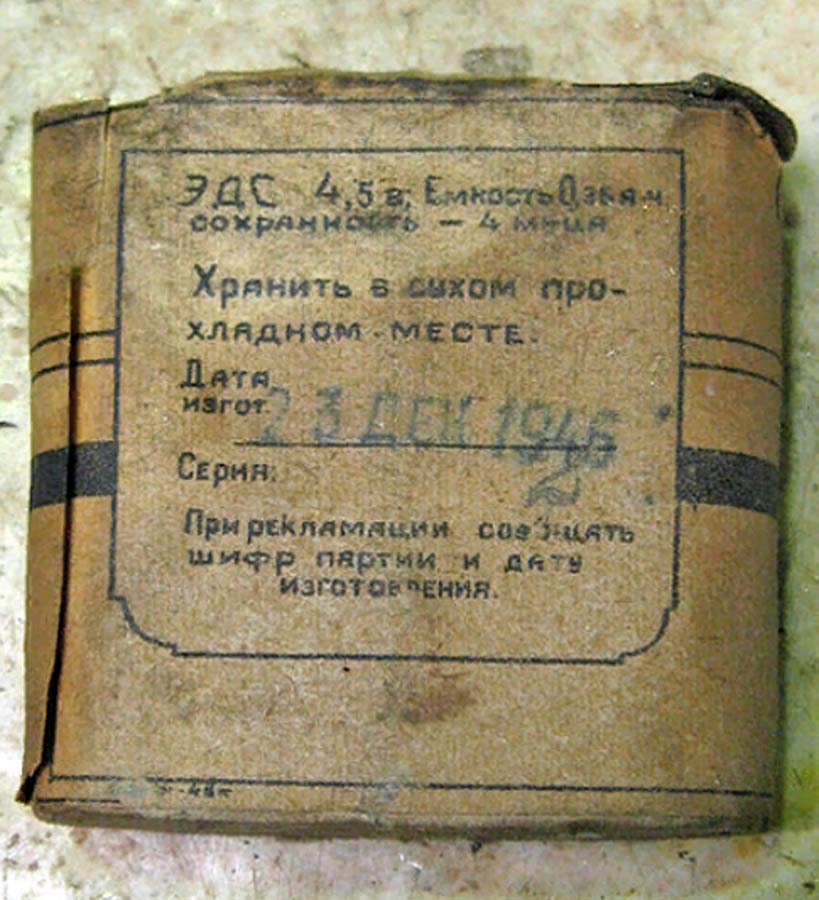 ЭДС 4,5 в, Емкость 0,36 а-ч
сохранность — 4 м-ца
Хранить в сухом про-
хладном месте.
Дата
изгот.
23 ДЕК 1946
2
Серия:
При рекламации сообщать
шифр партии и дату
изготовления.